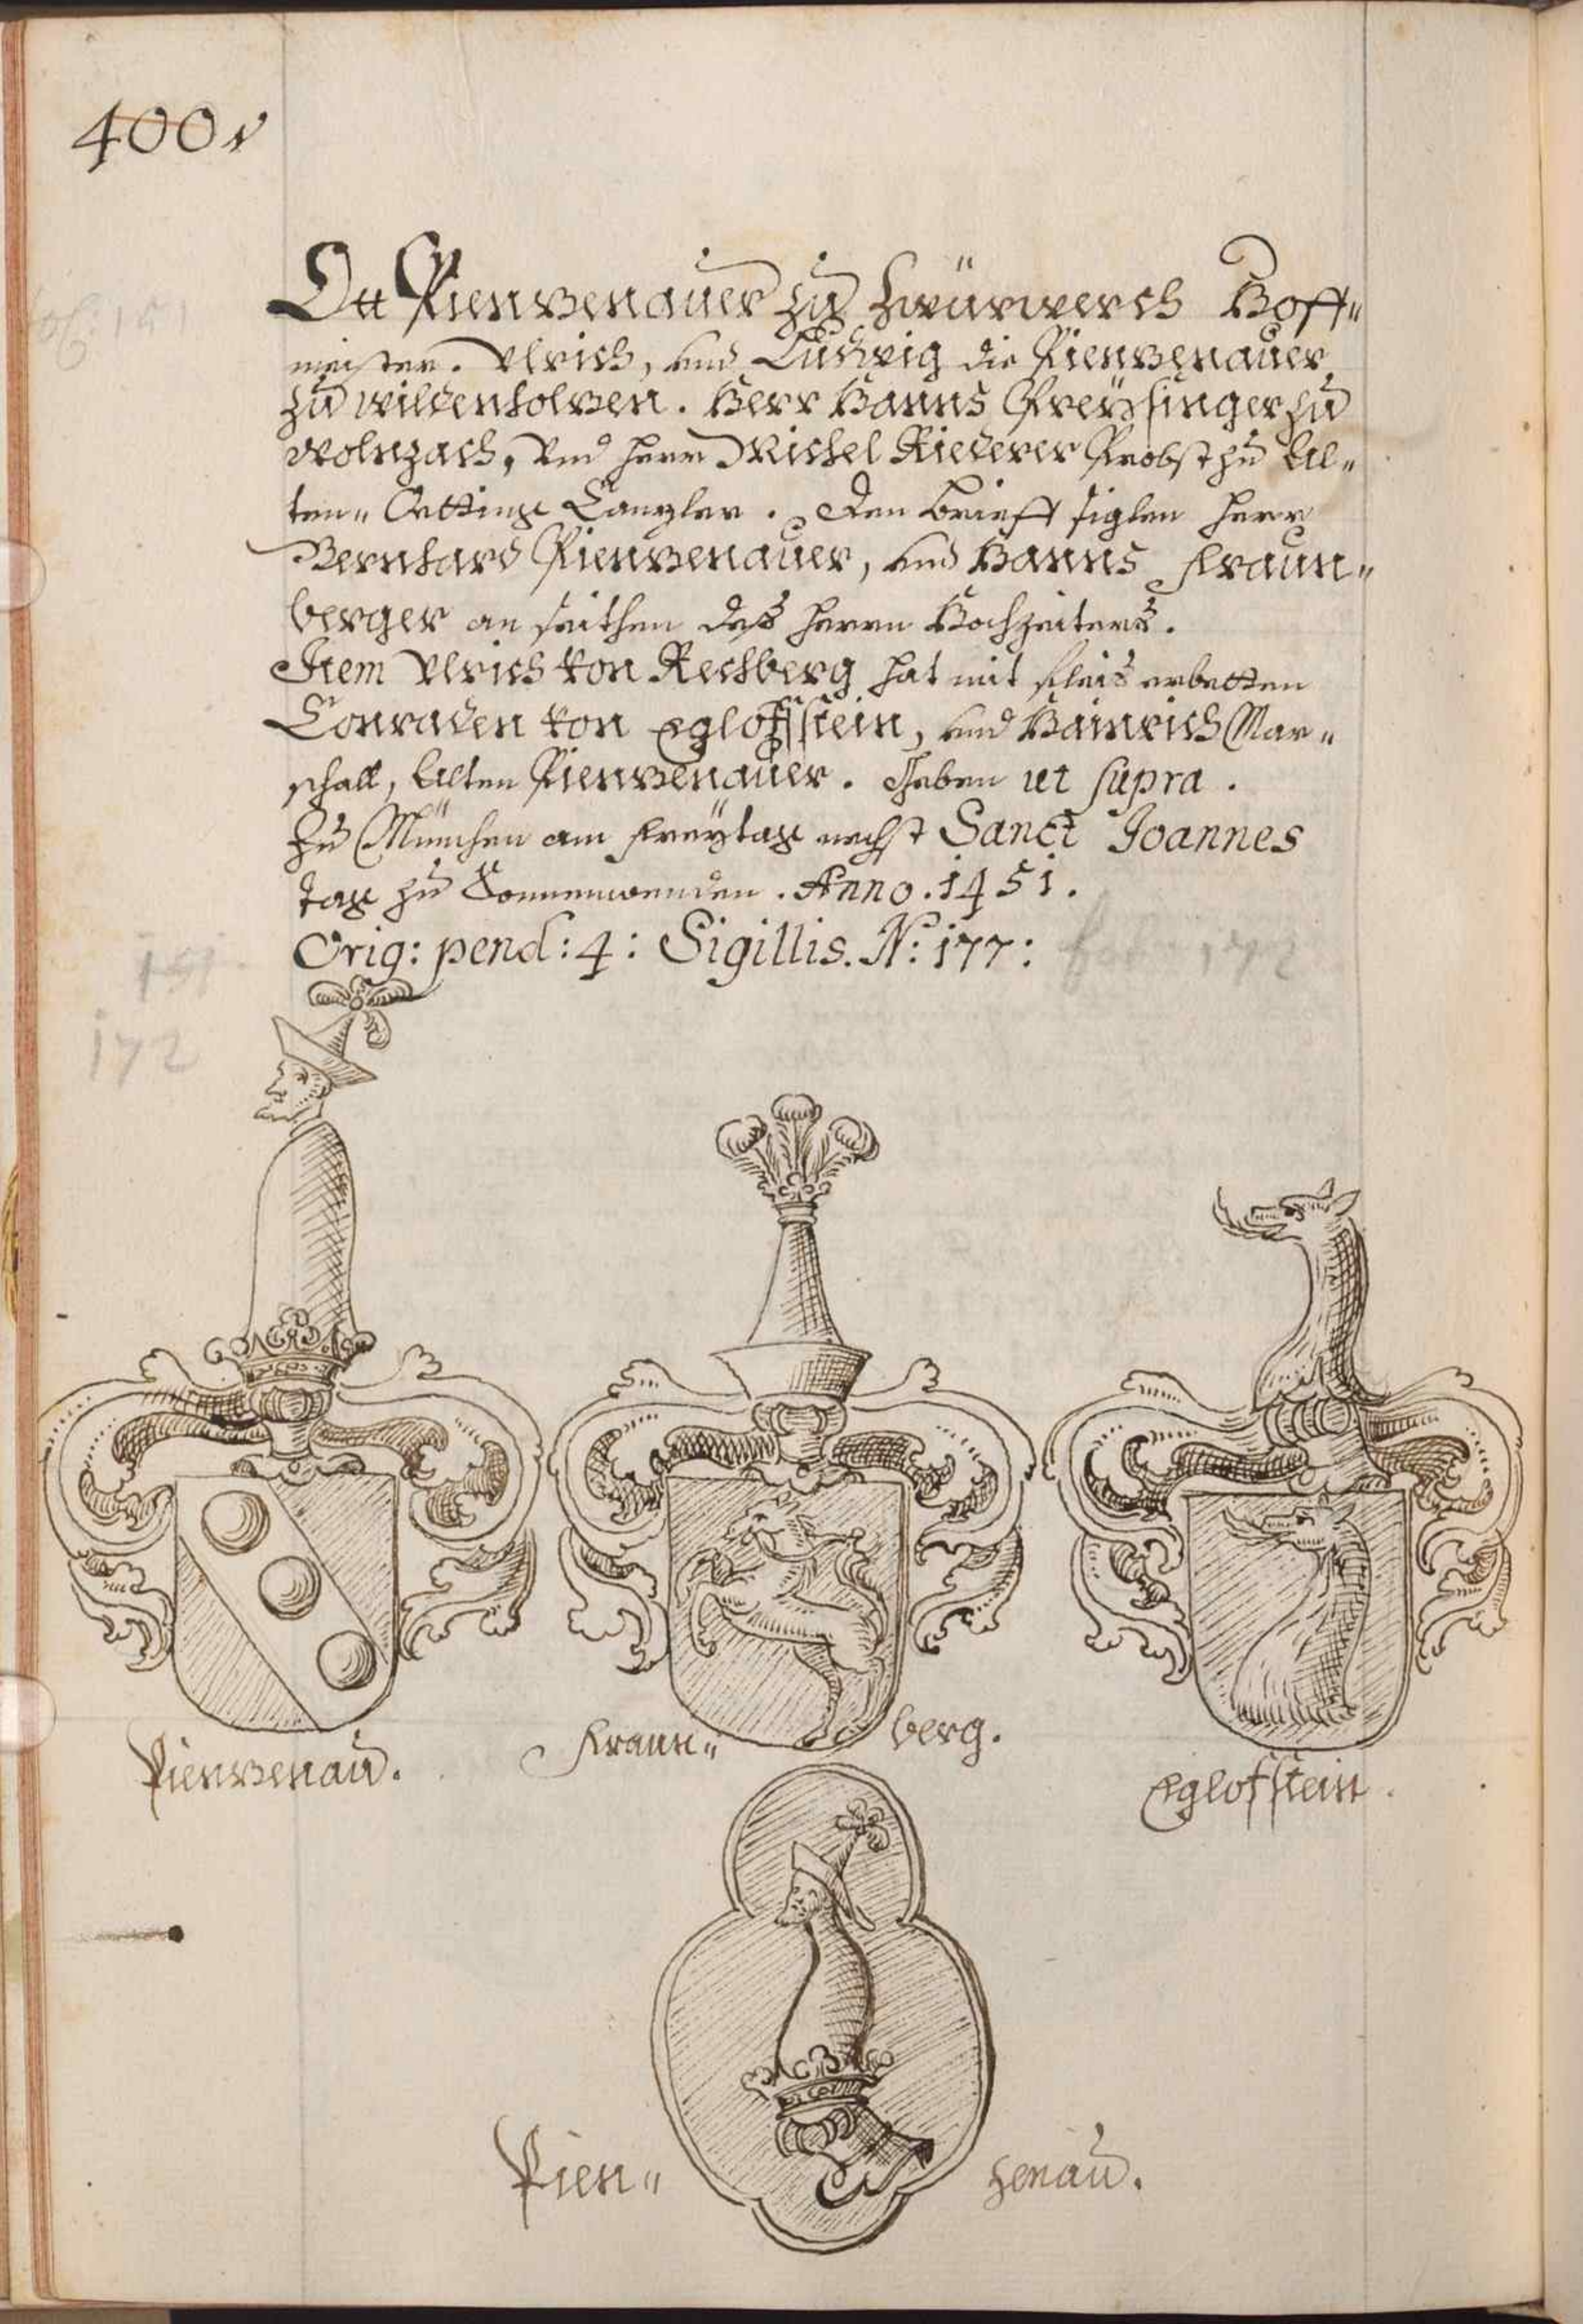 400.
Ott Pienzenauer zu Zwürwerch Hoff„
meister. Ulrich, und Ludwig die Pienzenauer
zu Wildenholzen. Herr Hanns Preÿsinger zu
Wolnzach, Und herr Michel Riederer Probst zu Al„
ten„ Oetting Canzler. Den brieff siglen herr
Bernhard Pienzenauer, und Hanns Fraun„
berger an seithen deß herrn Hochzeiters.
Item Ulrich von Rechberg hat mit fleis erbetten
Conraden von Eglofsstein, und Hainrich Mar„
schalk, Alten Pienzenauer. Geben ut supra.
Zu München am Freÿtag nechst Sanct Joannes
tag zu Sonnenwenden. Anno. 1451.
Orig: pend: 4: Sigillis. N: 177:
151
172
Pienzenau.
Fraun„ berg.
Eglofsstein.
Pien„ zenau.